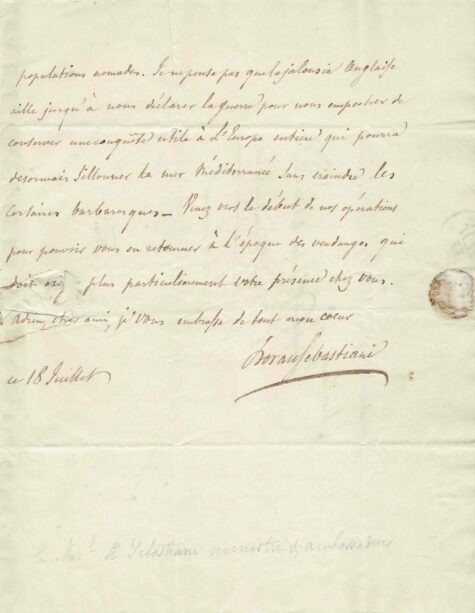 populations nomades. Je ne pense pas que la jalousie Anglaise
aille jusqu'à nous déclarer la guerre pour nous empecher de
conserver une conquête utile à L'Europe entière qui pourra
desormais sillonner la mer Méditerranée sans craindre les
Corsaires barbaresques _ Venez vers le début de nos opérations
pour pouvoir vous en retourner à l'époque des vendanges qui
doit plus particulierement votre presence chez vous.
adieu, cher ami, je vous embrasse de tout mon coeur
Sebastiani
ce 18 Juillet
le Mar.l H Sebastiani ministre & ambassadeur